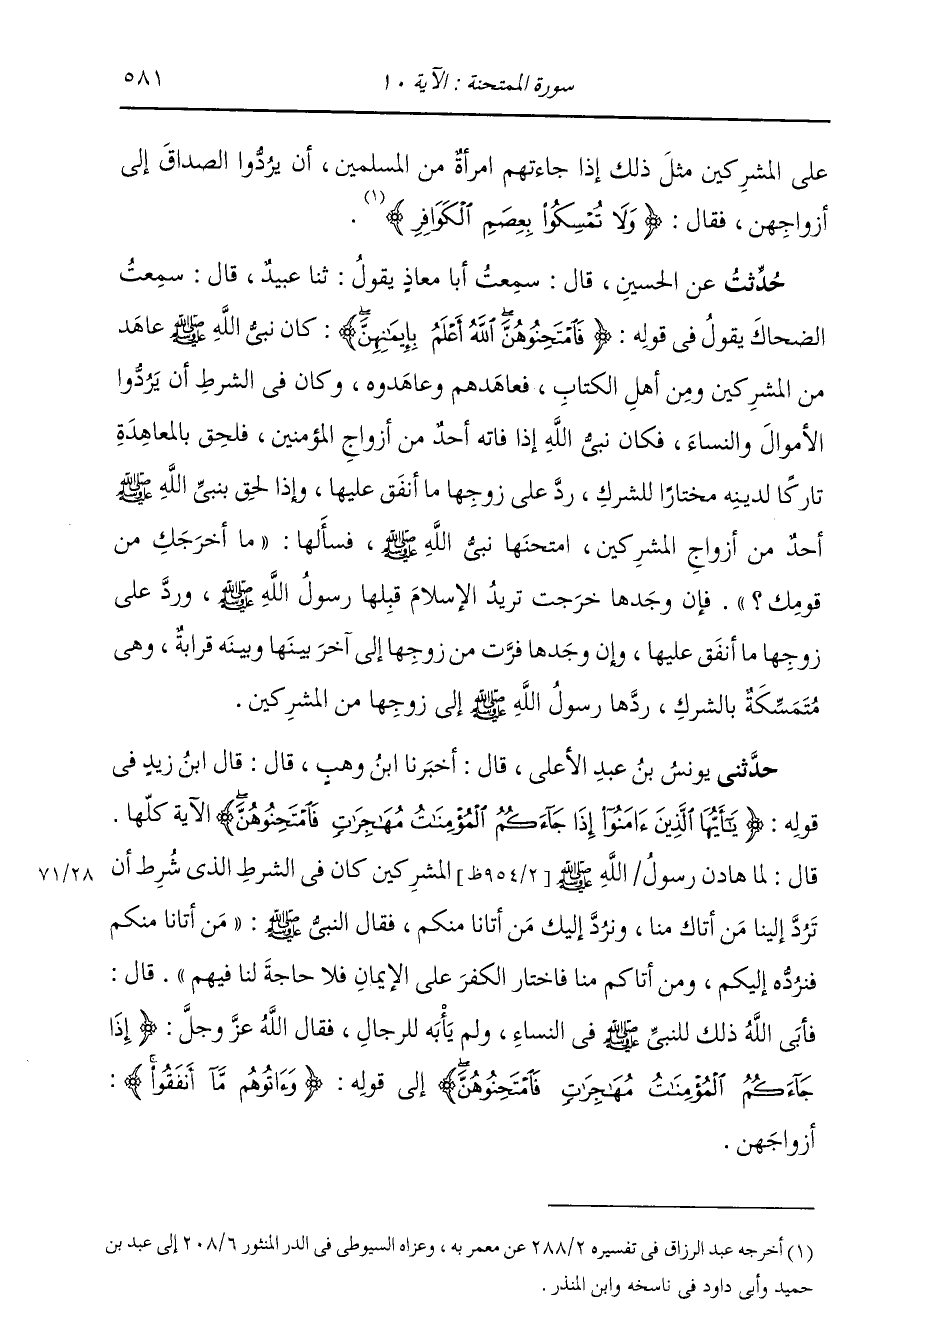 سورة الممتحنة : الآية ١٠ ٥٨١
على المشرِكين مثلَ ذلك إذا جاءتهم امرأةٌ من المسلمين ، أن يرُدُّوا الصداقَ إلى
أزواجِهن ، فقال : ﴿ وَلَا تُمْسِكُوا۟ بِعِصَمِ ٱلْكَوَافِرِ ﴾ (١) .
حُدِّثتُ عن الحسينِ ، قال : سمِعتُ أبا معاذٍ يقولُ : ثنا عبيدٌ ، قال : سمِعتُ
الضحاكَ يقولُ فى قولِه : ﴿ فَٱمْتَحِنُوهُنَّۖ ٱللَّهُ أَعْلَمُ بِإِيمَٰنِهِنَّۖ ﴾ : كان نبىُّ اللَّهِ ﷺ عاهَد
من المشرِكين ومِن أهلِ الكتابِ ، فعاهَدهم وعاهَدوه ، وكان فى الشرطِ أن يَرُدُّوا
الأموالَ والنساءَ ، فكان نبىُّ اللَّهِ إذا فاته أحدٌ من أزواجِ المؤمنين ، فلحِق بالمعاهِدَةِ
تاركًا لدينِه مختارًا للشركِ ، ردَّ على زوجِها ما أنفَق عليها ، وإذا لحِق بنبىِّ اللَّهِ ﷺ
أحدٌ من أزواجِ المشرِكين ، امتحنَها نبىُّ اللَّهِ ﷺ ، فسأَلها : « ما أخرَجَكِ من
قومِك ؟ » . فإن وجَدها خرَجت تريدُ الإسلامَ قبِلها رسولُ اللَّهِ ﷺ ، وردَّ على
زوجِها ما أنفَق عليها ، وإن وجَدها فرَّت من زوجِها إلى آخرَ بينَها وبينَه قرابةٌ ، وهى
مُتَمَسِّكَةٌ بالشركِ ، ردَّها رسولُ اللَّهِ ﷺ إلى زوجِها من المشرِكين .
حدَّثنى يونسُ بنُ عبدِ الأعلى ، قال : أخبَرنا ابنُ وهبٍ ، قال : قال ابنُ زيدٍ فى
قولِه : ﴿ يَٰٓأَيُّهَا ٱلَّذِينَ ءَامَنُوٓا۟ إِذَا جَآءَكُمُ ٱلْمُؤْمِنَٰتُ مُهَٰجِرَٰتٍ فَٱمْتَحِنُوهُنَّۖ ﴾ الآية كلّها .
قال : لما هادن رسولُ/ اللَّهِ ﷺ [٩٥٤/٢ظ] المشرِكين كان فى الشرطِ الذى شُرِط أن ٧١/٢٨
تَرُدَّ إلينا مَن أتاك منا ، ونرُدَّ إليك مَن أتانا منكم ، فقال النبىُّ ﷺ : « مَن أتانا منكم
فنرُدُّه إليكم ، ومن أتاكم منا فاختار الكفرَ على الإيمانِ فلا حاجةَ لنا فيهم » . قال :
فأبَى اللَّهُ ذلك للنبىِّ ﷺ فى النساءِ ، ولم يَأْبَه للرجالِ ، فقال اللَّهُ عزَّ وجلَّ : ﴿ إِذَا
جَآءَكُمُ ٱلْمُؤْمِنَٰتُ مُهَٰجِرَٰتٍ فَٱمْتَحِنُوهُنَّۖ ﴾ إلى قولِه : ﴿ وَءَاتُوهُم مَّآ أَنفَقُوا۟ۚ ﴾ :
أزواجَهن .
(١) أخرجه عبد الرزاق فى تفسيره ٢٨٨/٢ عن معمر به ، وعزاه السيوطى فى الدر المنثور ٢٠٨/٦ إلى عبد بن
حميد وأبى داود فى ناسخه وابن المنذر .